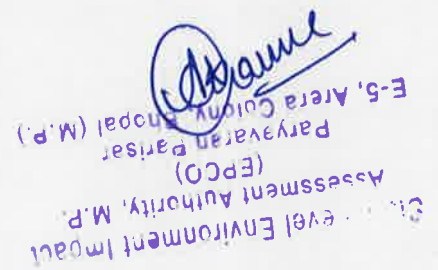 evel Environment Impact
Assessment Authority, M.P.
(EPCO)
Paryavaran Parisar
E-5, Arera Colony, Bhopal (M.P.)